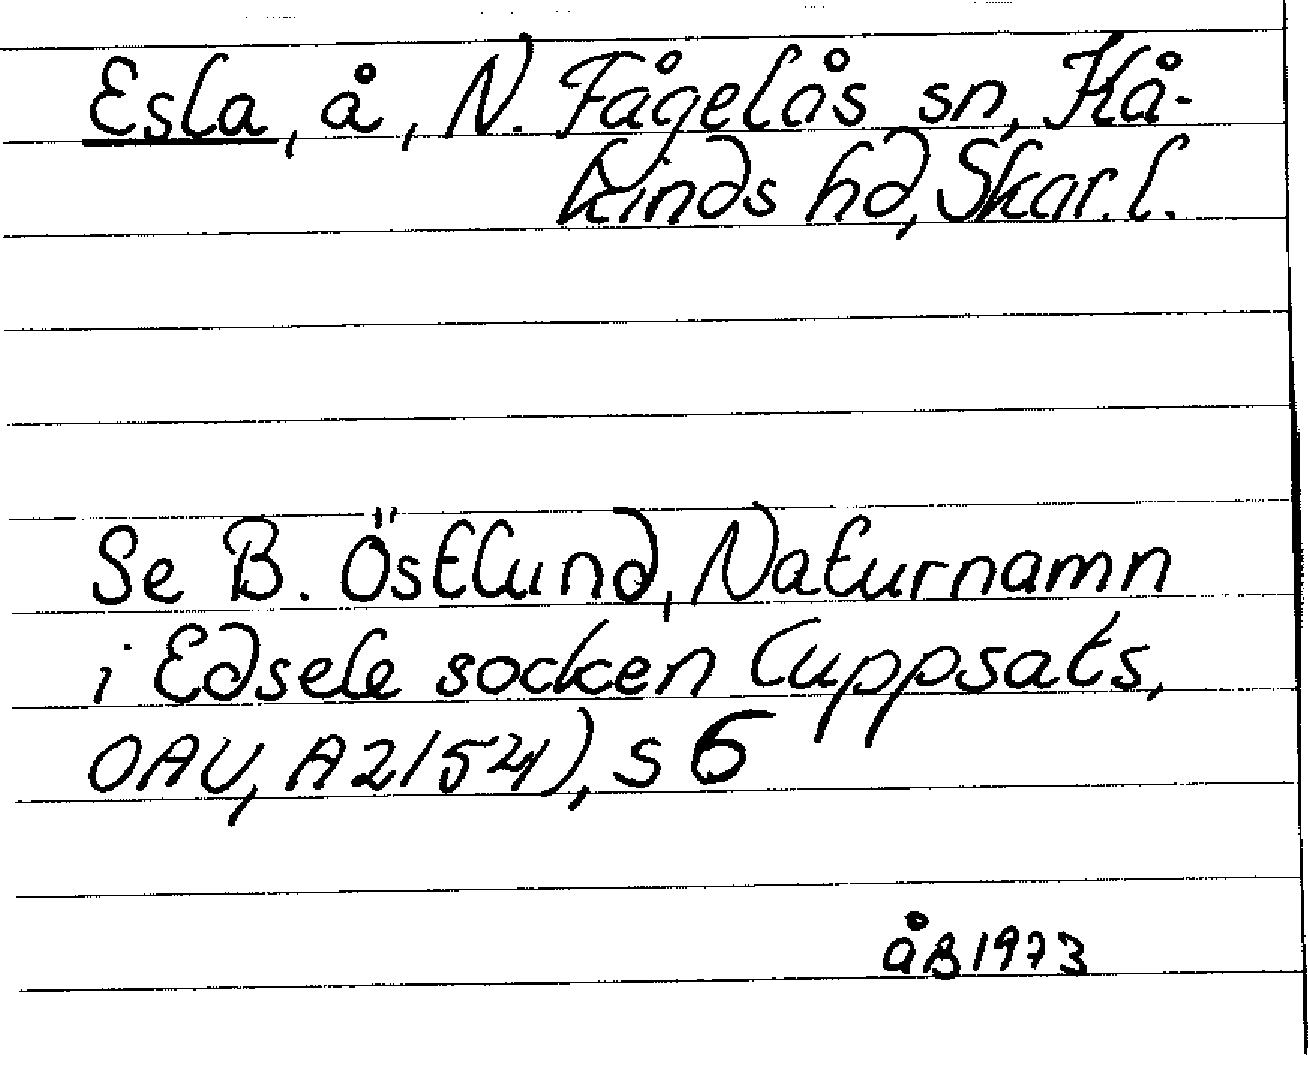 Esla, å, N. Fågelås sn, Kå-
kinds hd, Skar. l.
Se B. Östlund, Naturnamn
i Edsele socken (uppsats,
OAU, A2154), s 6
åB 1973